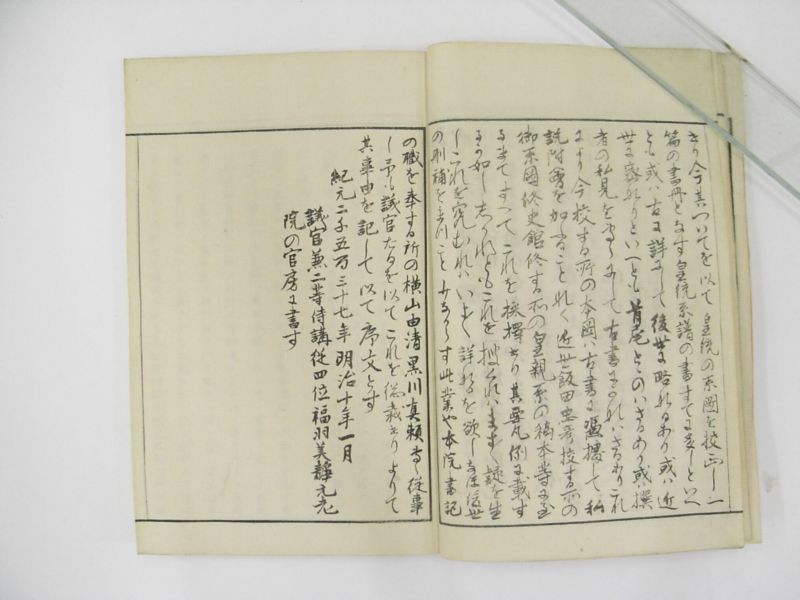 きり今其ついてを以て皇統の系図を校正し一
篇の書冊となす皇統系譜の書すてに多しといへ
とも或ハ古に詳にして後世に略れるあり或ハ近
世に委れりといへとも首尾とゝのハさるあり或ハ撰
者の私見を
により今校する所の本図ハ古書に憑拠して私
説附会を加ふることれく近世飯田忠彦校する所の
御系図修史館修する所の皇親系の稿本等に至
るまてすへてこれを採択せり其要凡例に載す
るか如ししかれともこれを捜くれハます〳〵疑を生
しこれを究むれハいよ〳〵詳れるを欲しな
の刪補をまつこと此業や本院書記
の職を奉する所の横山由清黒川真頼専ら従事
し予も議官たるを以てこれを総裁せりよりて
其事由を記して以て序文とす
紀元二千五百三十七年明治十年一月
議官兼二等侍講従四位福羽美静
院の官房に書す